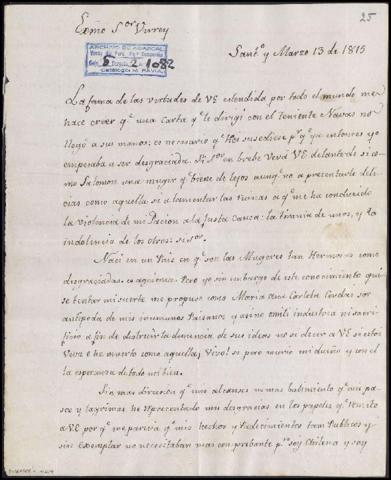 25
Exmo Sor Virrey
ARCHIVO DE ABASCAL
Santo y Marzo 13 de 1815
La fama de las virtudes de VE estendida por todo el mundo me
hace creer qe una Carta qe le dirigi con el teniente Navas no
llegó a sus manos: es necesario qe asi susediese pa qe yo entonces ya
empesaba a ser desgraciada. Si Sor en brebe Verá VE delante de si co-
mo Salomon una muger qe biene de lejos aunqe no a presentarle deli-
cias como aquella si a lamentar las ruinas a qe me ha conducido
la Violencia de mi Pacion a la Justa Causa: la tirania de unos, y la
indolencia de los otros
Naci en un Pais en qe son las Mugeres tan Hermosas como
desgraciadas. Pero yo sin embargo de este conocimiento quise
tentar mi suerte me propuse como Maria Ana Carlota Cordai ser
antipoda de mis inhumanos Paisanos y
a fin de destruir la de sus ideas no se decir a VE si esta
Vive o ha muerto como aquella; Vivo! si pero murio mi dueño y con el
la esperanza de todo mi bien.
Sin mas direccion qe mis alcanses ni mas balimiento qe mis pa-
sos y lagrimas he representado mis desgracias en los papeles qe remito
a VE por qe me paresia qe mis hechos y Padecimientos tan Publicos y
sin Exemplar no necesitaban mas comprobante pr soy Chilena y soy